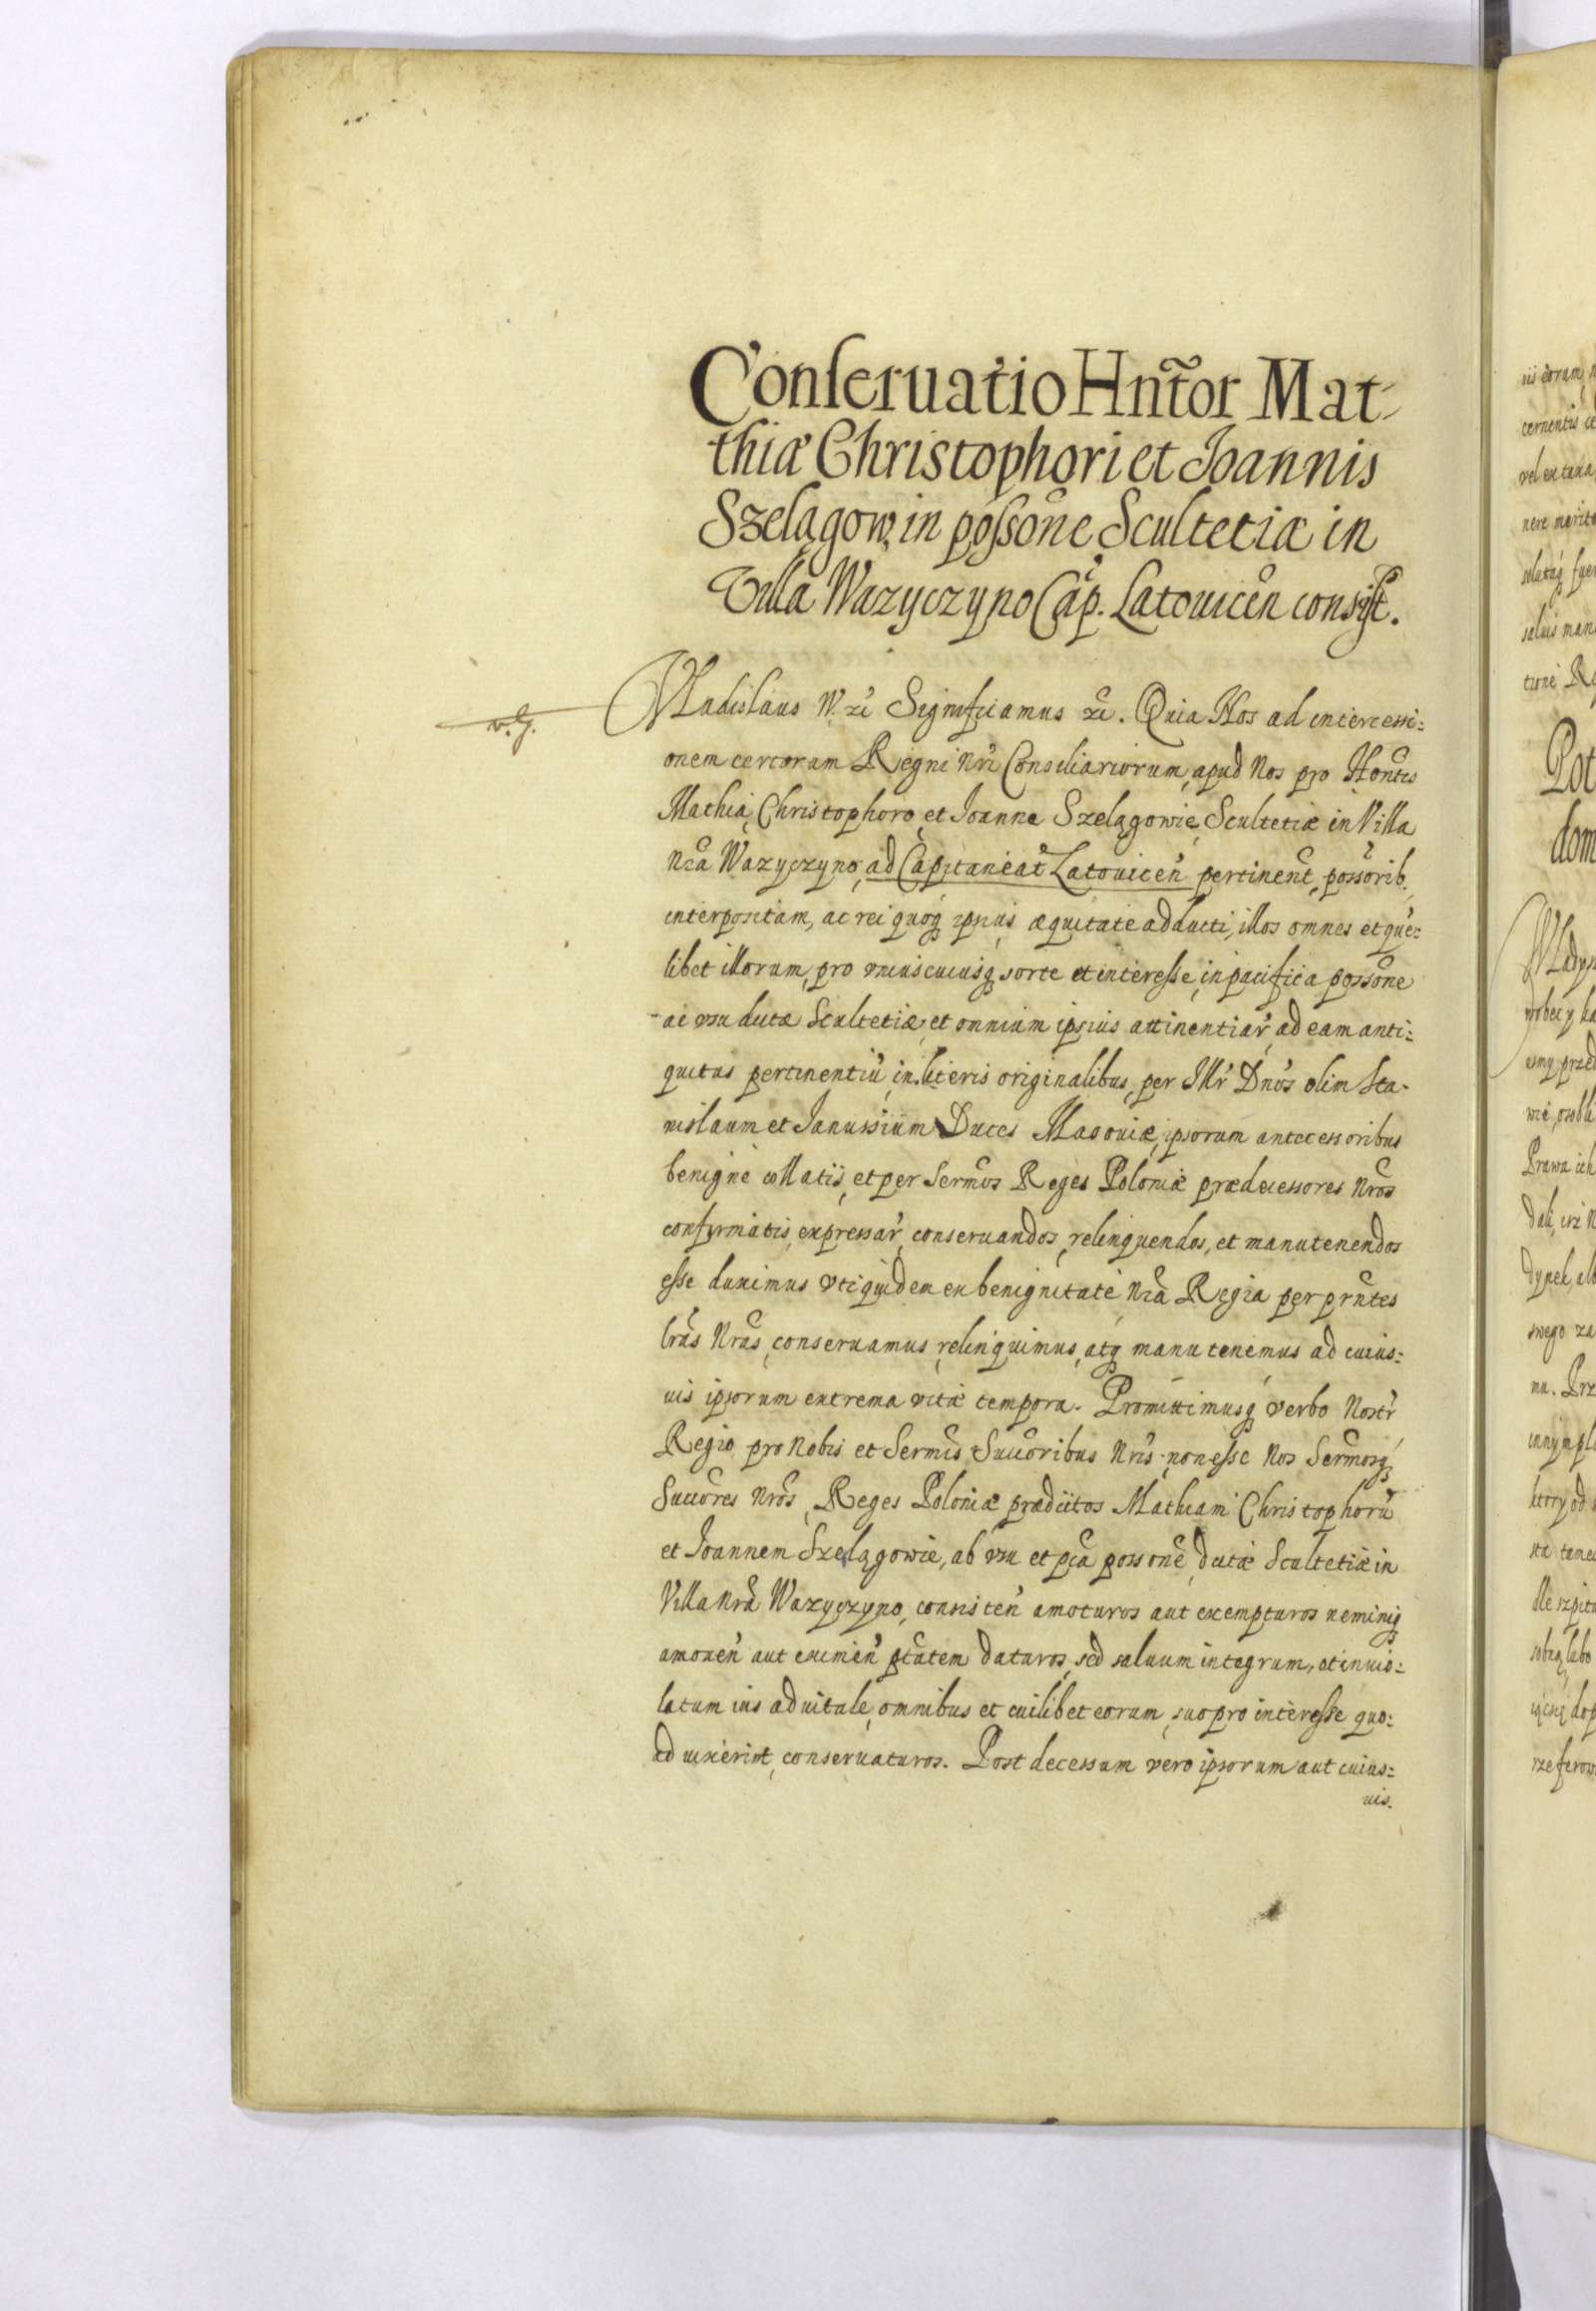 Conseruatio Hñtor Mat-
thiæ Christophori et Joannis
Szelągow, in possõne Scultetiæ in
Villa Wazyczyno Cap. Latouiceñ consist.
Vladislaus W. etc Significamus etc. Quia Nos ad intercessi:
onem certorum Regni Nri Consiliariorum, apud Nos pro Hontis
Mathia, Christophoro, et Joanne Szelągowie, Scultetiæ in Villa
Nra Wazyczyno, ad Capitaneat Latouiceñ pertineñt, possorib.
interpositam, ac rei quoq ipsius æquitate adducti, illos omnes et que:
libet illorum, pro vniuscuiusq sorte et interesse, in pacifica possone
ac vsu dictæ Scultetiæ, et omnium ipsius attinentiar, ad eam anti:
quitus pertinentiu, in literis originalibus, per Illr Dnos olim Sta-
nislaum et Janussium Duces Masouiæ, ipsorum antecessoribus
benigne collatis, et per Sermos Reges Poloniæ prædecessores Nros
confirmatis, expressar, conseruandos, relinquendos, et manutenendos
esse duximus vti quidem ex benignitate Nra Regia per prntes
lras Nras, conseruamus, relinquimus, atq manutenemus ad cuius:
uis ipsorum extrema vitæ tempora. Promittimusq verbo Nostr
Regio pro Nobis et Sermis Succoribus Nris non esse Nos Sermosq
Succores Nros, Reges Poloniæ prædictos Mathiam Christophoru
et Joannem Szelągowie, ab vsu et pca possone, dictæ Scultetiæ in
Villa Nra Wazyczyno, consisteñ amoturos aut exempturos neminiq
amoueñ aut eximeñ ptatem daturos, sed saluum integrum, et inuio:
latum ius aduitale, omnibus et cuilibet eorum, suo pro interesse quo:
ad uixerint, conseruaturos. Post decessum vero ipsorum aut cuius:
uis.